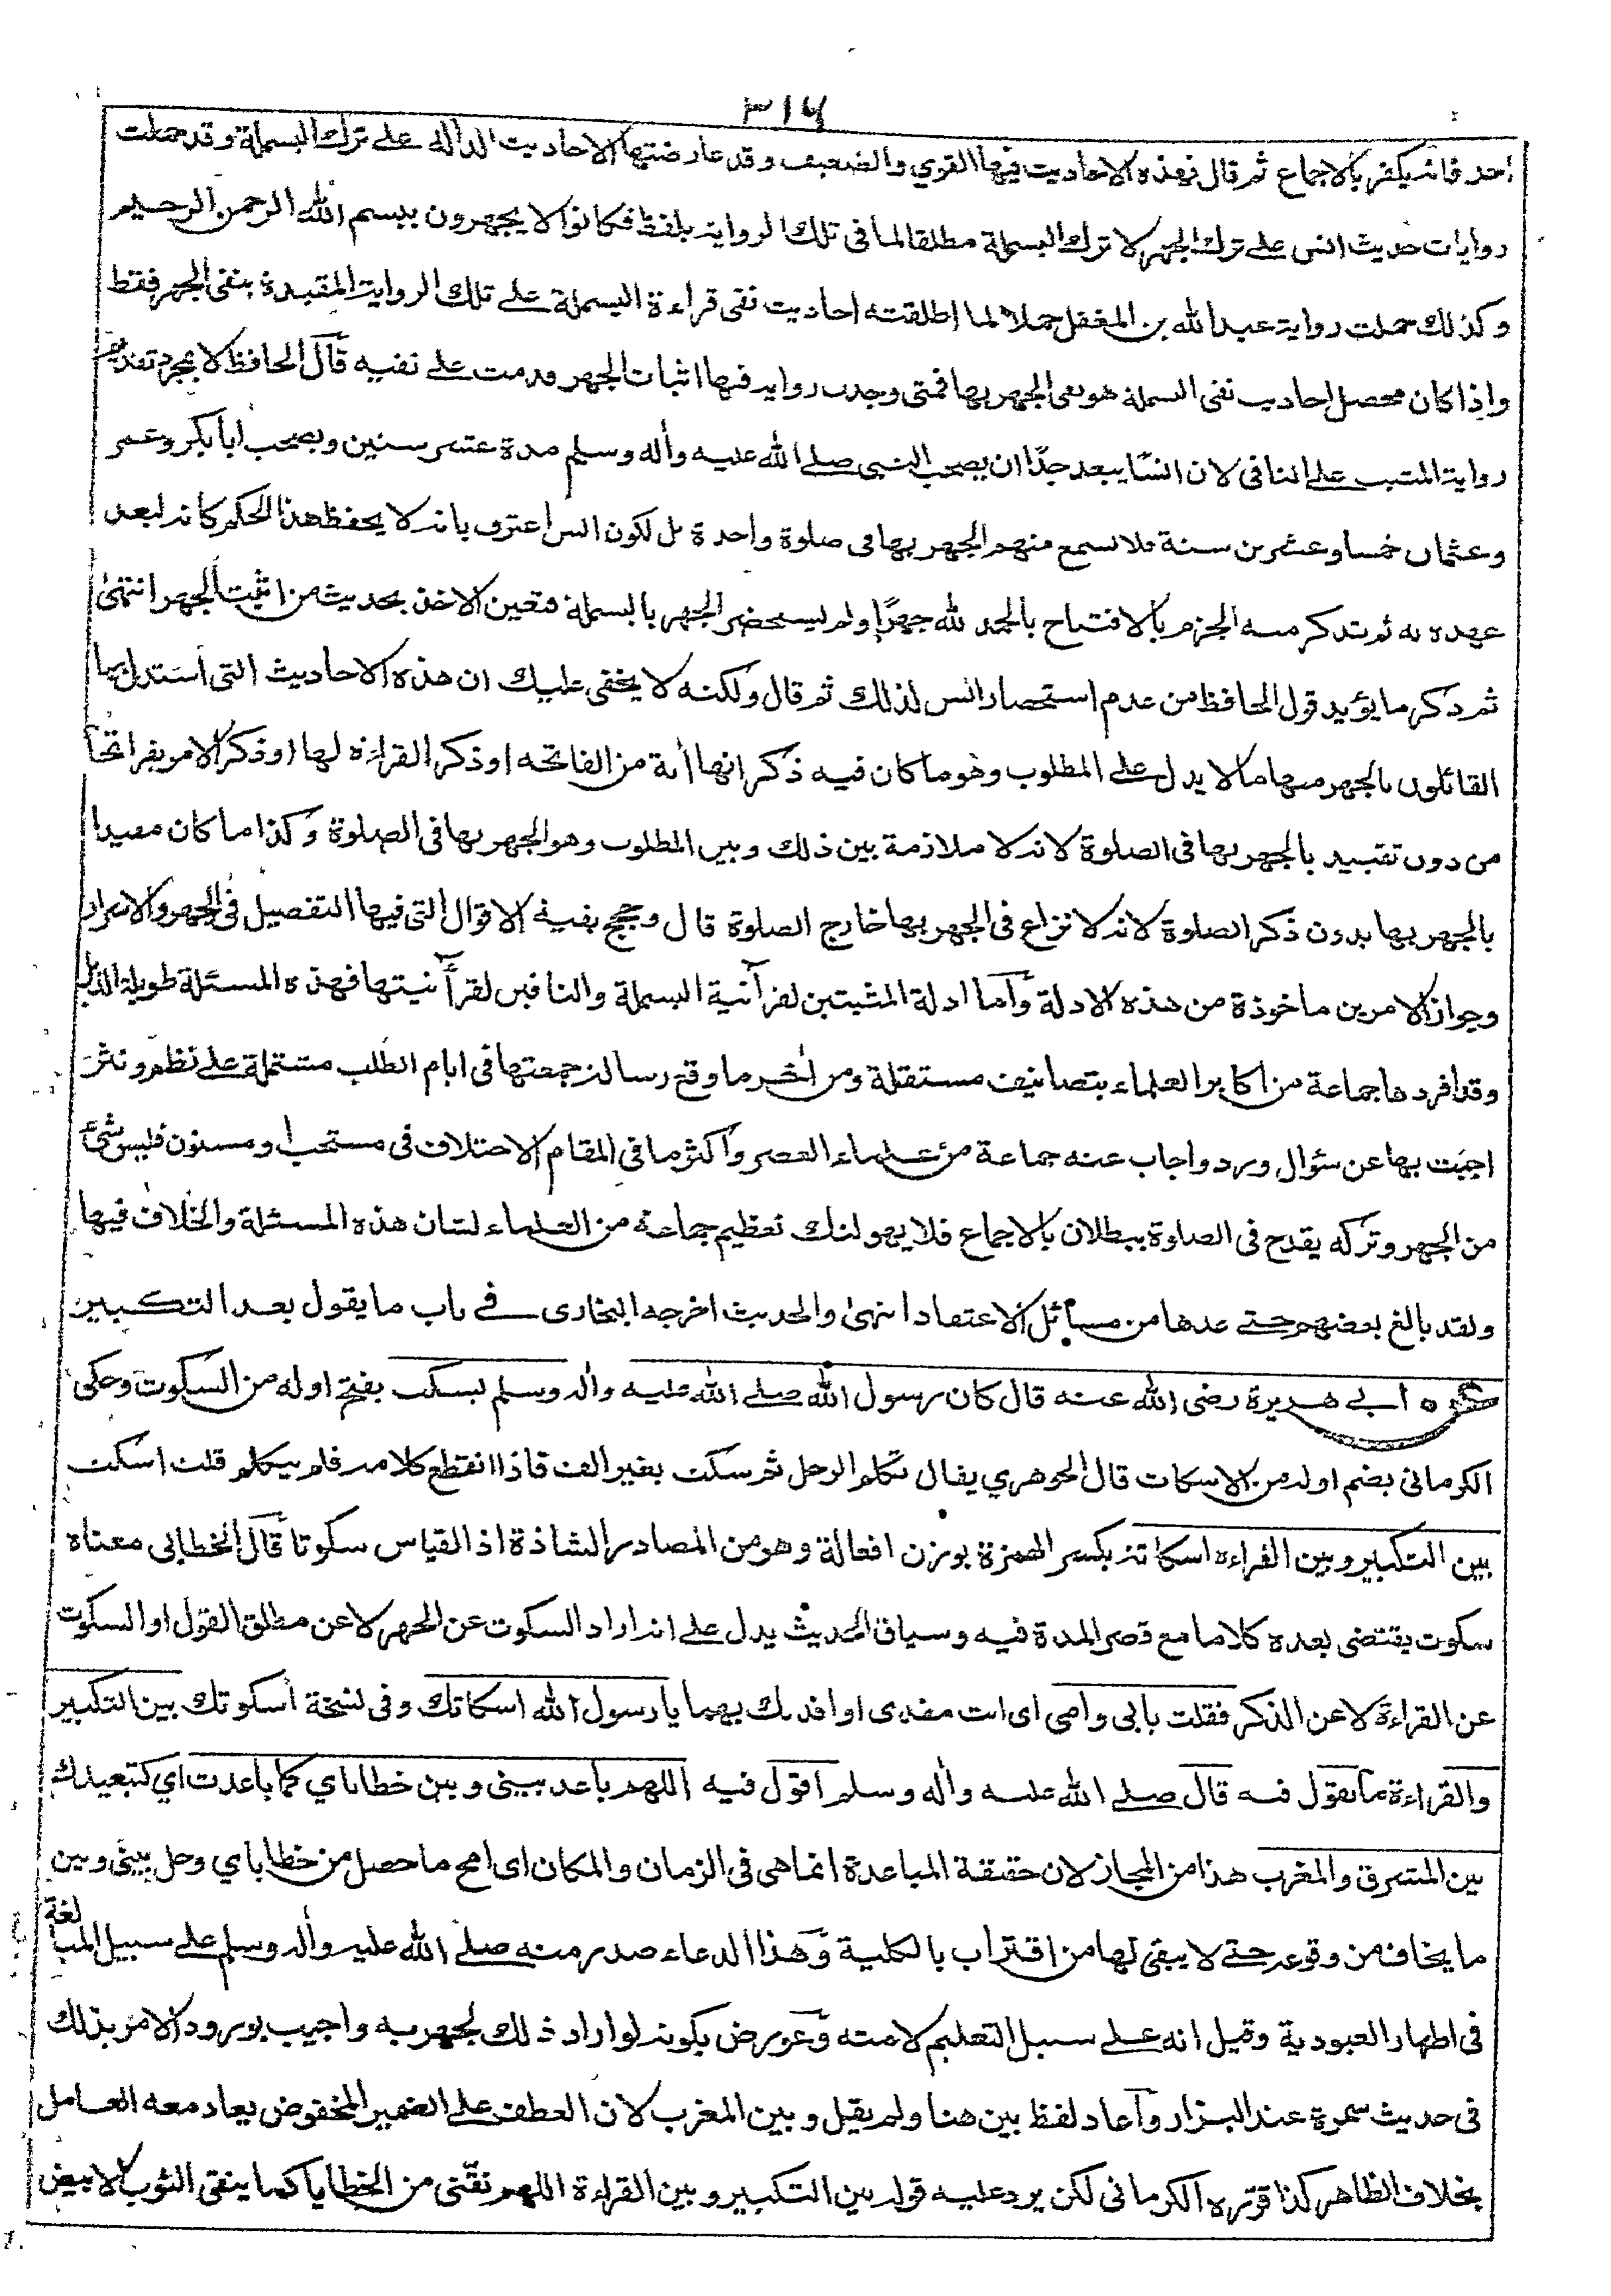 ٣١٦
احد فانه يكفر بالاجماع ثم قال فهذه الاحاديث فيها القوي والضعيف وقد عارضتها الاحاديث الدالة على ترك البسملة وقد حملت
روايات حديث انس على ترك الجهر لا ترك البسملة مطلقا لما في تلك الرواية بلفظ فكانوا لا يجهرون ببسم الله الرحمن الرحيم
وكذلك حملت رواية عبد الله بن المغفل حملا لما اطلقته احاديث نفى قراءة البسملة على تلك الرواية المقيدة بنفى الجهر فقط
واذا كان محصل احاديث نفى البسملة هو نفى الجهر بها فمتى وجدت رواية فيها اثبات الجهر قدمت على نفيه قال الحافظ لا بمجرد تقديم
رواية المثبت على النافى لان انسا يبعد جدا ان يصحب النبى صلى الله عليه وآله وسلم مدة عشر سنين ويصحب ابا بكر وعمر
وعثمان خمسا وعشرين سنة فلا يسمع منهم الجهر بها فى صلوة واحدة بل لكون انس اعترف بانه لا يحفظ هذا الحكم كانه لبعد
عهده به ثم تذكر منه الجزم بالافتتاح بالحمد لله جهرا ولم يستحضر الجهر بالبسملة فتعين الاخذ بحديث من اثبت الجهر انتهى
ثم ذكر ما يؤيد قول الحافظ من عدم استحضار انس لذلك ثم قال ولكنه لا يخفى عليك ان هذه الاحاديث التى استدل بها
القائلون بالجهر منها ما لا يدل على المطلوب وهو ما كان فيه ذكر انها آية من الفاتحه او ذكر القراءة لها او ذكر الامر بقراءتها
من دون تقييد بالجهر بها فى الصلوة لانه لا ملازمة بين ذلك وبين المطلوب وهو الجهر بها فى الصلوة وكذا ما كان مقيدا
بالجهر بها بدون ذكر الصلوة لانه لا نزاع فى الجهر بها خارج الصلوة قال وحجج بقية الاقوال التى فيها التفصيل فى الجهر والاسرار
وجواز الامرين ماخوذة من هذه الادلة وآما ادلة المثبتين لقرآنية البسملة والنافين لقرآنيتها فهذه المسئلة طويلة الذيل
وقد افردها جماعة من اكابر العلماء بتصانيف مستقلة ومن آخر ما وقع رسالة جمعتها فى ايام الطلب مشتملة على نظم ونثر
اجبت بها عن سؤال ورد واجاب عنه جماعة من علماء العصر واكثر ما فى المقام الاختلاف فى مستحب او مسنون فليس شئ
من الجهر وتركه يقدح فى الصلوة ببطلان بالاجماع فلا يهولنك تعظيم جماعة من العلماء لشان هذه المسئلة والخلاف فيها
ولقد بالغ بعضهم حتى عدها من مسائل الاعتقاد انتهى والحديث اخرجه البخارى فى باب ما يقول بعد التكبير
عن ابي هريرة رضى الله عنه قال كان رسول الله صلى الله عليه وآله وسلم يسكت بفتح اوله من السكوت وحكى
الكرمانى بضم اوله من الاسكات قال الجوهري يقال تكلم الرجل ثم سكت بغير الف فاذا انقطع كلامه فلم يتكلم قلت اسكت
بين التكبير وبين القراءه اسكاتة بكسر الهمزة بوزن افعالة وهو من المصادر الشاذة اذ القياس سكوتا قال الخطابى معناه
سكوت يقتضى بعده كلاما مع قصر المدة فيه وسياق الحديث يدل على انه اراد السكوت عن الجهر لا عن مطلق القول او السكوت
عن القراءة لا عن الذكر فقلت بابى وامى اى انت مفدى او افديك بهما يا رسول الله اسكاتك وفى نسخة أسكوتك بين التكبير
والقراءة ما تقول فيه قال صلى الله عليه وآله وسلم اقول فيه اللهم باعد بينى وبين خطاياي كما باعدت اي كتبعيدك
بين المشرق والمغرب هذا من المجاز لان حقيقة المباعدة انما هى فى الزمان والمكان اى امح ما حصل من خطاياي وحل بينى وبين
ما يخاف من وقوعه حتى لا يبقى لها من اقتراب بالكلية وهذا الدعاء صدر منه صلى الله عليه وآله وسلم على سبيل المبالغة
فى اظهار العبودية وقيل انه على سبيل التعليم لامته وعورض بكونه لو اراد ذلك لجهر به واجيب بورود الامر بذلك
فى حديث سمرة عند البزار وآعاد لفظ بين هنا ولم يقل وبين المغرب لان العطف على الضمير المخفوض يعاد معه العامل
بخلاف الظاهر كذا قرره الكرمانى لكن يرد عليه قوله بين التكبير وبين القراءة اللهم نقنى من الخطايا كما ينقى الثوب الابيض